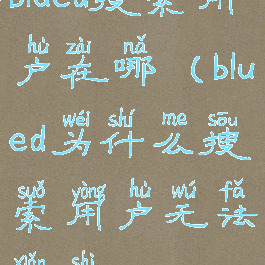 blued搜索用
hù zài nǎ
户在哪（blu
wéi shí me sōu
ed为什么搜
suǒ yòng hù wú fǎ
索用户无法
xiǎn shì